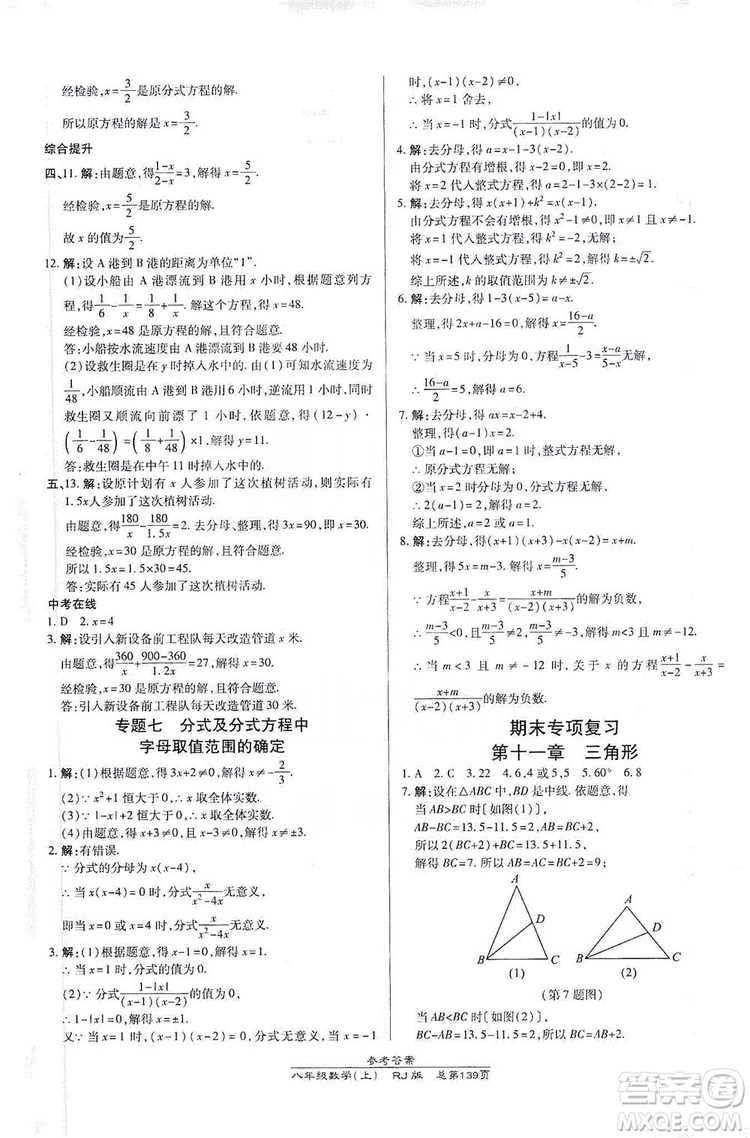 经检验,x=3/2是原分式方程的解.
所以原方程的解是x=3/2.
综合提升
四、11. 解:由题意,得(1-x)/(2-x)=3,解得x=5/2.
经检验,x=5/2是原方程的解.
故x的值为5/2.
12. 解:设A港到B港的距离为单位“1”.
(1)设小船由A港漂流到B港用x小时,根据题意,得1/6-1/x=1/8+1/x.解得x=48.
经检验,x=48是原方程的解,且符合题意.
答:小船按水流速度由A港漂流到B港要48小时.
(2)设救生圈是在y时掉入水中的.由(1)可知水流速度为每小时1/48,则小船顺流由A港到B港用6小时,逆流用1小时,同时救生圈又顺流向前漂了1小时,依题意,得(12-y)·
(1/6-1/48)=(1/8+1/48)×1,解得y=11.
答:救生圈是在中午11时掉入水中的.
五、13. 解:设原计划有x人参加了这次植树活动,则实际有
1.5x人参加了这次植树活动.
由题意得180/x-180/1.5x=2.去分母、整理得3x=90,即x=30.
经检验x=30是原方程的解,且符合题意.
所以1.5x=1.5×30=45.
答:实际有45人参加了这次植树活动.
中考在线
1. D 2. x=4
3. 解:设引入新设备前工程队每天改造管道x米.
由题意得360/x+(900-360)/((1+20%)x)=27,解得x=30.
经检验,x=30是原方程的解,且符合题意.
答:引入新设备前工程队每天改造管道30米.
专题七 分式及分式方程中
字母取值范围的确定
1. 解:(1)根据题意得3x+2≠0,解得x≠-2/3.
(2)∵x²+1恒大于0,∴x取全体实数.
(3)∵|x|+1恒大于0,∴x取全体实数.
(4)由题意,得x+3≠0,且x-3≠0,解得x≠±3.
2. 解:有错误.
∵分式的分母为x(x-4),
∴当x(x-4)=0时,分式x/(x²-4x)无意义,
即当x=0或x=4时,分式x/(x²-4x)无意义.
3. 解:(1)根据题意,得x-1=0,解得x=1.
∴当x=1时,分式的值为0.
(2)∵(1-|x|)/((x-1)(x-2))=0,
∴1-|x|=0,解得x=±1.
又∵当x=1时,(x-1)(x-2)=0;当x=-1
时,(x-1)(x-2)≠0,
∴将x=1舍去,
∴当x=-1时,分式(1-|x|)/((x-1)(x-2))的值为0.
4. 解:去分母,得x-1-3(x-2)=a.
由分式方程有增根,得x-2=0,即x=2.
将x=2代入整式方程,得a=2-1-3×(2-2)=1.
5. 解:去分母,得x(x+1)+k²-x(x-1)=0.
由分式方程不会有增根,得x²-1≠0,即x≠±1.
将x=1代入整式方程,得k²=-2,无解;
将x=-1代入整式方程,得k²=2,解得k=±√2.
综上所述,k的取值范围为k≠±√2.
6. 解:去分母,得1-3(x-5)=-(x+a).
整理,得2x=a+16,解得x=(16-a)/2.
∵当x=5时,分式方程(x+a)/(5-x)=3无解,
∴(16-a)/2=5,解得a=6.
7. 解:去分母,得ax=x-2+4.
整理,得(a-1)x=2.
①当a=1时,a-1=0,整式方程无解,
∴原分式方程无解.
②当x=2时分母为0,分式方程无解,
∴2(a-1)=2,∴a=2.
综上所述,a=2或a=1.
8. 解:去分母,得(x+1)(x+3)-x(x-2)=x+m.
整理,得5x+3=m.解得x=(m-3)/5.
∵方程(x+1)/(x-2)-x/(x+3)=(x+m)/((x-2)(x+3))的解为负数,
∴(m-3)/5<0,且(m-3)/5≠-3,
∴m<3且m≠-12,
∴当m<3且m≠-12时,关于x的方程(x+1)/(x-2)-x/(x+3)=
(x+m)/((x-2)(x+3))的解为负数.
期末专项复习
第十一章 三角形
1. A 2. C 3. 22 4. 6,4或5,5 5. 60° 6. 8
7. 解:设在△ABC中,BD是中线.依题意,得
当AB>BC时[如图(1)],
AB-BC=13.5-11.5=2,AB=BC+2,
所以2(BC+2)+BC=13.5+11.5=25,
解得BC=7.此时AB=AC=9;
A
D
B
C
(1)
A
D
B
C
(2)
(第7题图)
当AB<BC时[如图(2)],
BC-AB=13.5-11.5=2,BC=AB+2,
参考答案
八年级数学(上) RJ版 总第139页